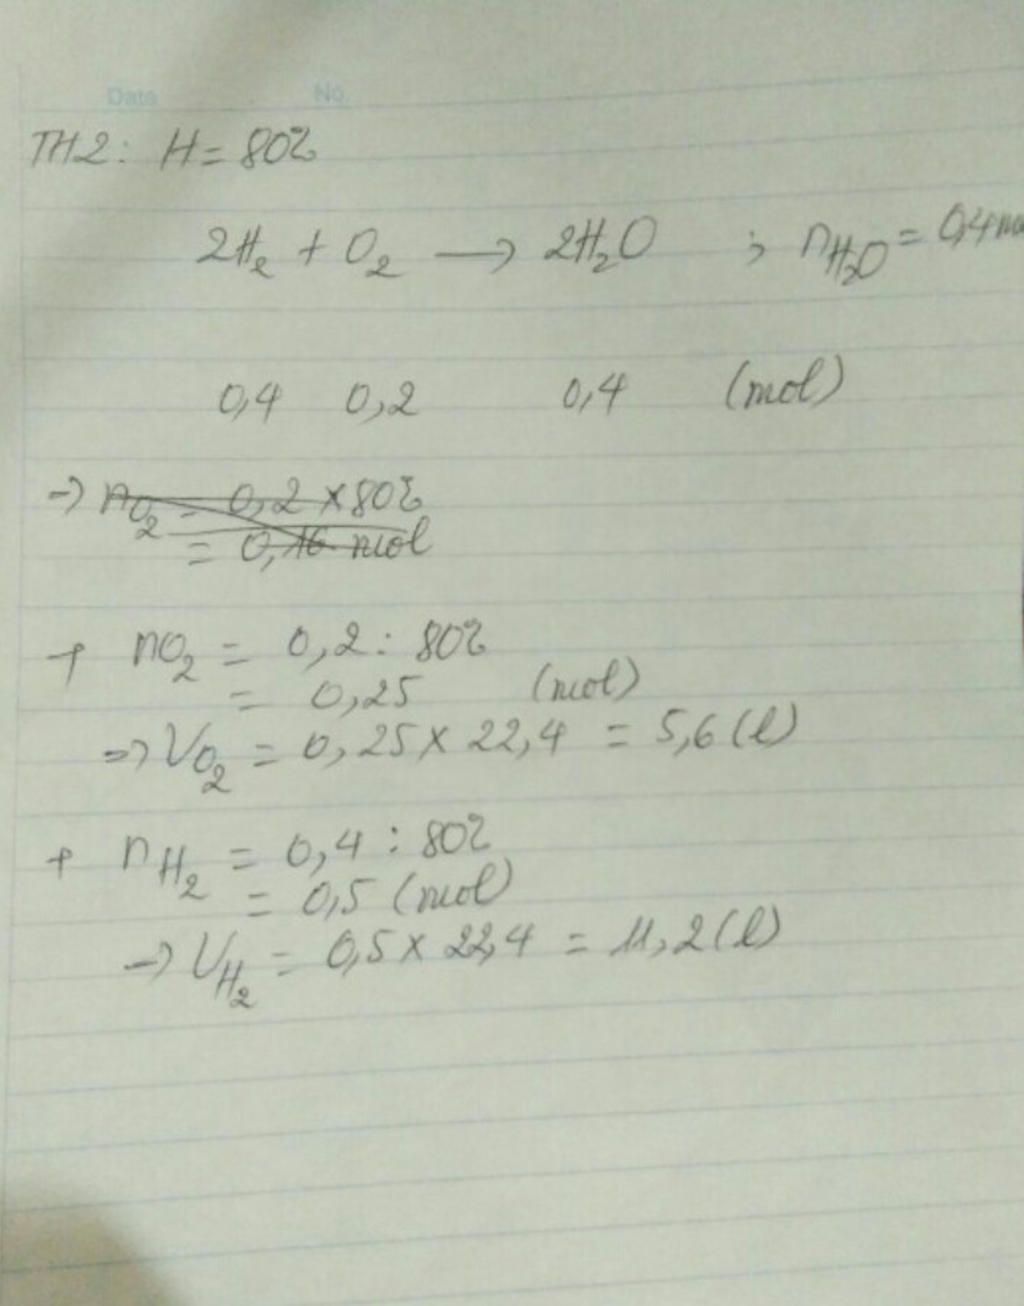 Date No
TH2: H = 80%
2H₂ + O₂ → 2H₂O ; nH₂O = 0,4 mo
0,4 0,2 0,4 (mol)
→ nO₂ = 0,2 × 80%
= 0,16 mol
+ nO₂ = 0,2 : 80%
= 0,25 (mol)
=> VO₂ = 0,25 × 22,4 = 5,6 (l)
+ nH₂ = 0,4 : 80%
= 0,5 (mol)
→ VH₂ = 0,5 × 22,4 = 11,2 (l)